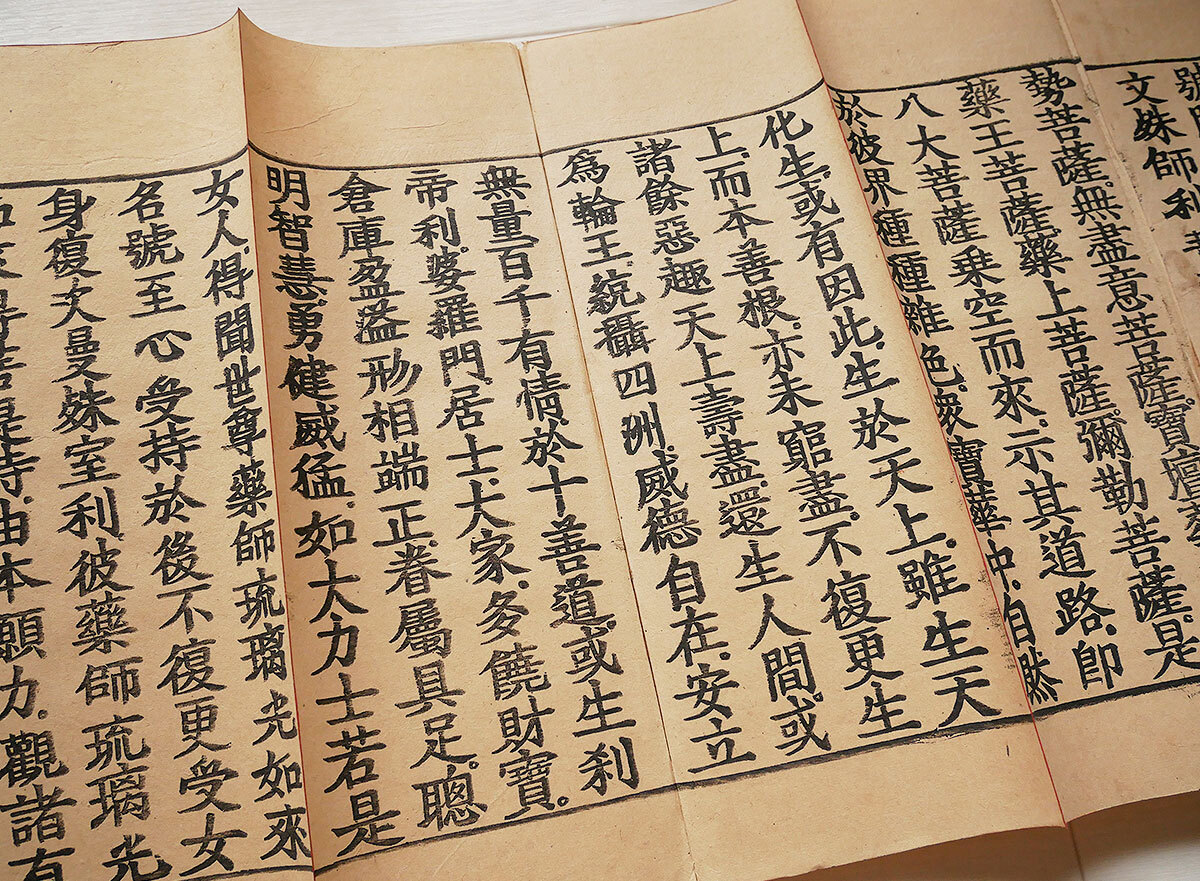 號
文殊師利菩
勢菩薩。無盡意菩薩。寶壇華
藥王菩薩。藥上菩薩。彌勒菩薩。是
八大菩薩乗空而來。示其道路。卽
於彼界種種雜色。衆寶華中。自然
化生。或有因此。生於天上。雖生天
上。而本善根。亦未窮盡。不復更生
諸餘惡趣。天上壽盡。還生人間。或
爲輪王。統攝四洲。威德自在。安立
無量百千有情。於十善道。或生刹
帝利。婆羅門。居士。大家。多饒財寶。
倉庫盈溢。形相端正。眷屬具足。聰
明智慧。勇健威猛。如大力士若是
女人。得聞世尊藥師琉璃光如來
名號至心受持於後不復更受女
身復次曼殊室利彼藥師琉璃光
如來得菩提時。由本願力。觀諸有